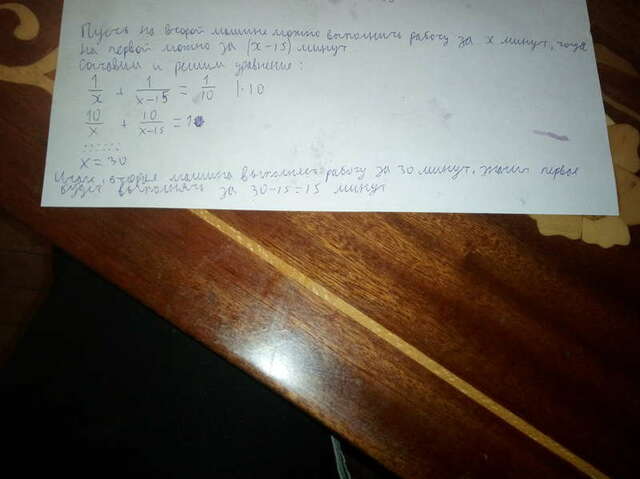 Пусть на второй машине можно выполнить работу за x минут, тогда
на первой можно за (x-15) минут
Составим и решим уравнение:
1/x + 1/(x-15) = 1/10 |·10
10/x + 10/(x-15) = 1
......
x = 30
Итак, вторая машина выполнит работу за 30 минут, значит первая
будет выполнять за 30-15=15 минут